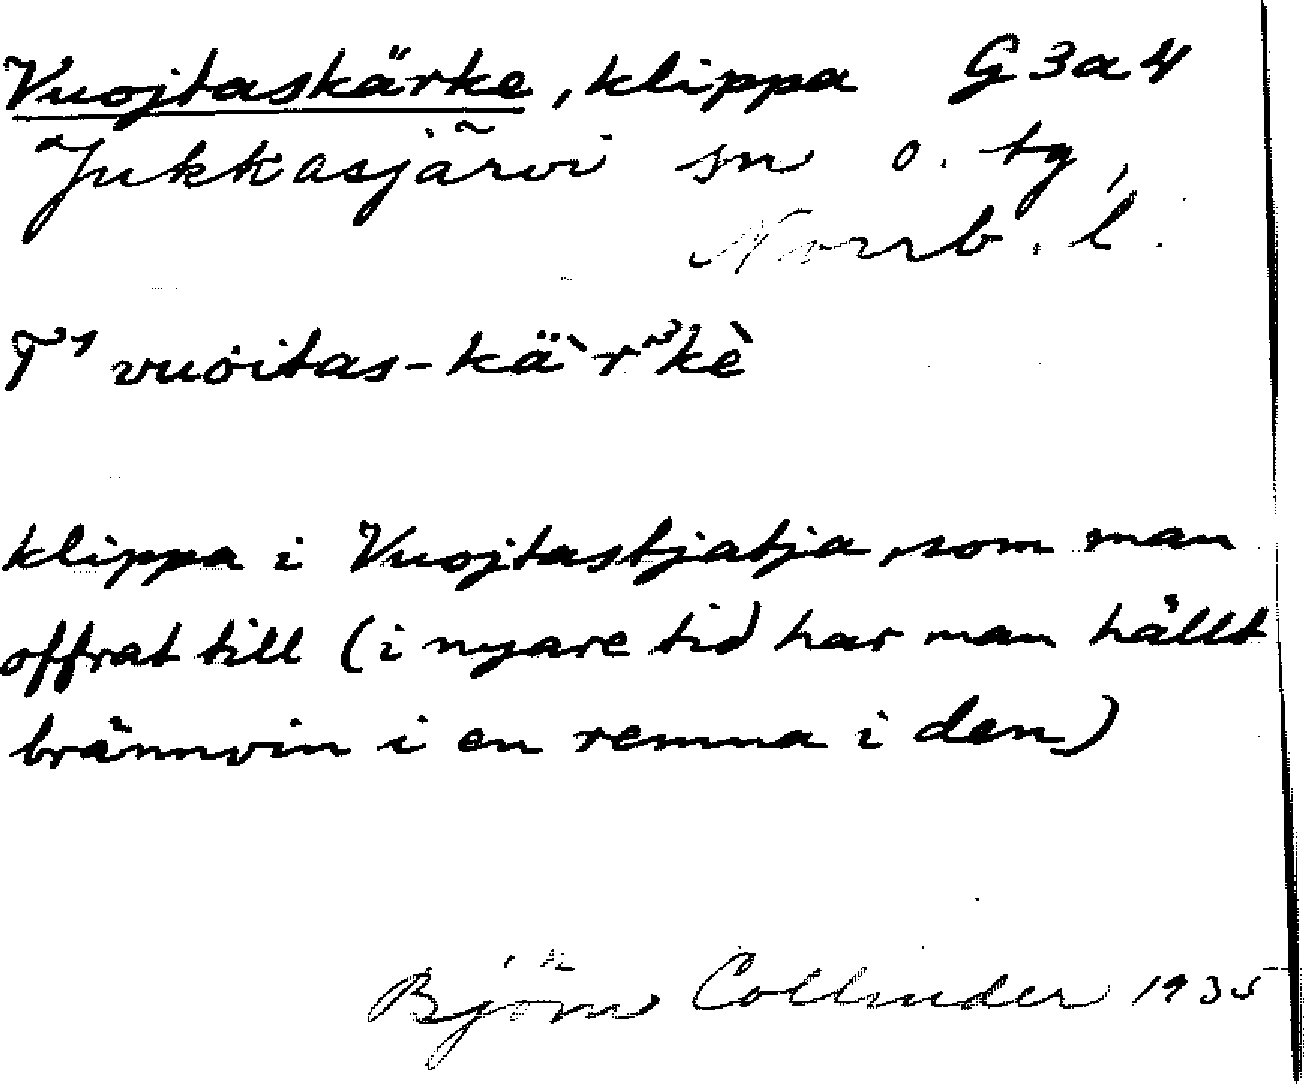 Vuojtaskärke, klippa G3a4
Jukkasjärvi sn o. tg,
Norrb. l.
T¹ vuoitas-kä`r³kè
klippa i Vuojtastjatja, som man
offrat till (i nyare tid har man hållt
brännvin i en remna i den)
Björn Collinder 1935